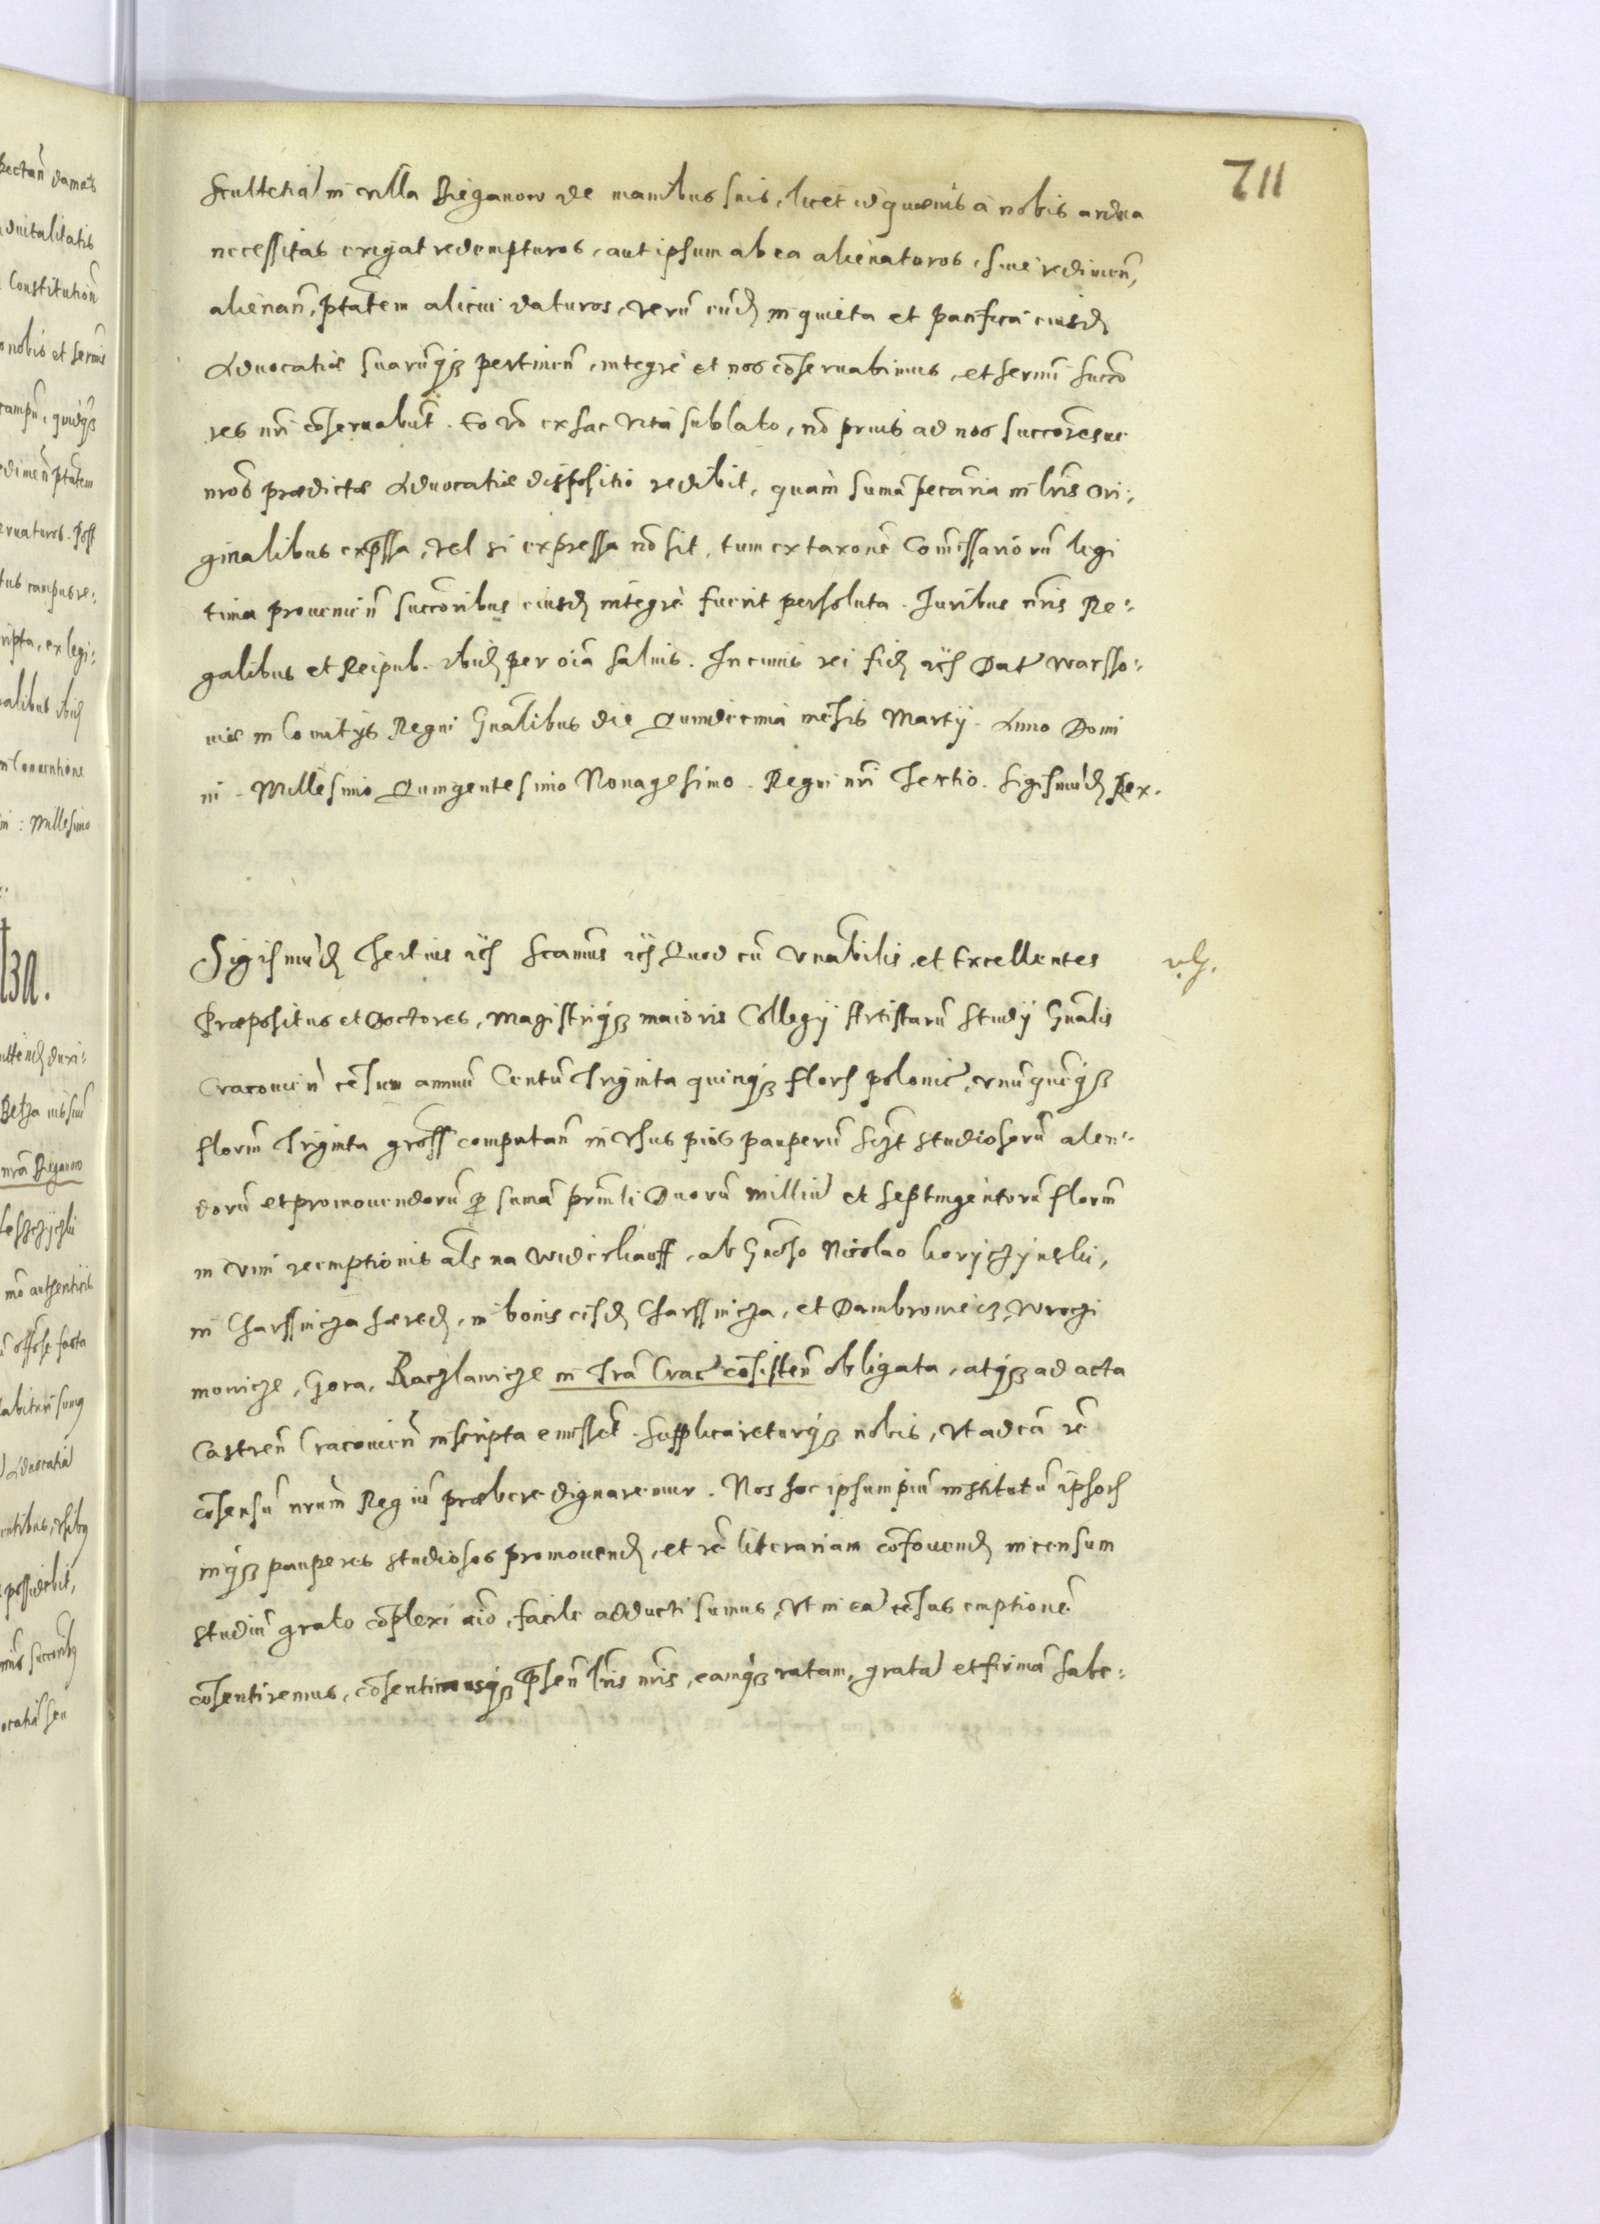 711
Scultetiã in villa Bieganow de manibus suis, licet id quævis à nobis ardua
necessitas exigat redempturos, aut ipsum ab ea alienaturos, sive redimeñ,
alienañ, ptatem alicui daturos, verũ eund in quieta et pacifica eiusd
Advocatiæ suarũq pertineñ, integrè et nos coservabimus, et sermi succo
res nri coservabũt. Eo vo ex hac vita sublato, no prius ad nos successoresve
nros prædictæ Advocatiæ dispositio redibit, quàm suma pecaria in lris Ori:
ginalibus expssa, vel si expressa no sit, tum ex taxone Comissariorũ legi
tima provenieñ succoribus eiusd integrè fuerit persoluta. Iuribus nris Re:
galibus et Reipub. ibid per oia salvis. In cuius rei fid rcs Dat Warsso:
viæ in Comitijs Regni Gnalibus die Quindecima mesis Martij. Anno Domi
ni. Millesimo Quingentesimo Nonagesimo. Regni nri Tertio. Sigismud Rex.
Sigismud Tertius rcs Scamus rcs Quod cũ Vnabilis, et Excellentes
Præpositus et Doctores, Magistriq maioris Collegij Artistarũ Studij Gnalis
Cracovieñ cesum annuũ Centũ Triginta quinq flors polonic, vnũ queq
florin Triginta gross computañ in vsus pios pauperũ sczt studiosorũ alen:
dorũ et promovendorũ p suma prinli Duorũ milliũ et septingentorũ florin
in vim reemptionis als na widerkauff, ab Gnoso Nicolao Koryczynski,
in Charssnicza hæred, in bonis eisd Charssnicza, et Dambrowiecz, Wroczi
mowicze, Gora, Raczlawicze in Tra Crac cosisteñ obligata, atq ad acta
Castreñ Cracovieñ inscripta emisset. Supplicareturq nobis, vt ad eã re
cosensũ nrum Regiũ præbere dignaremur. Nos hoc ipsum piũ institutũ ipsors
inq pauperes studiosos promovend, et re literariam cofovend incensum
studiũ grato coplexi aio, facile adducti sumus, vt in eã cesus emptione
cosentiremus, cosentimusq pseñ lris nris, eamq ratam, gratã et firmã habe: